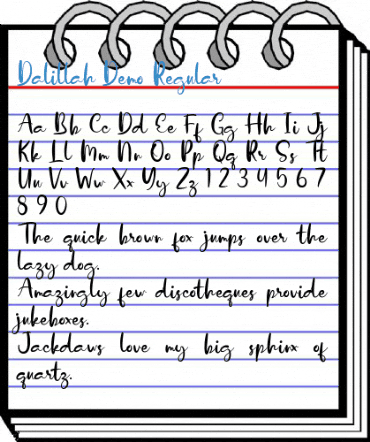 Dalillah Demo Regular
Aa Bb Cc Dd Ee Ff Gg Hh Ii Jj
Kk Ll Mm Nn Oo Pp Qq Rr Ss Tt
Uu Vv Ww Xx Yy Zz 1 2 3 4 5 6 7
8 9 0
The quick brown fox jumps over the
lazy dog.
Amazingly few discotheques provide
jukeboxes.
Jackdaws love my big sphinx of
quartz.